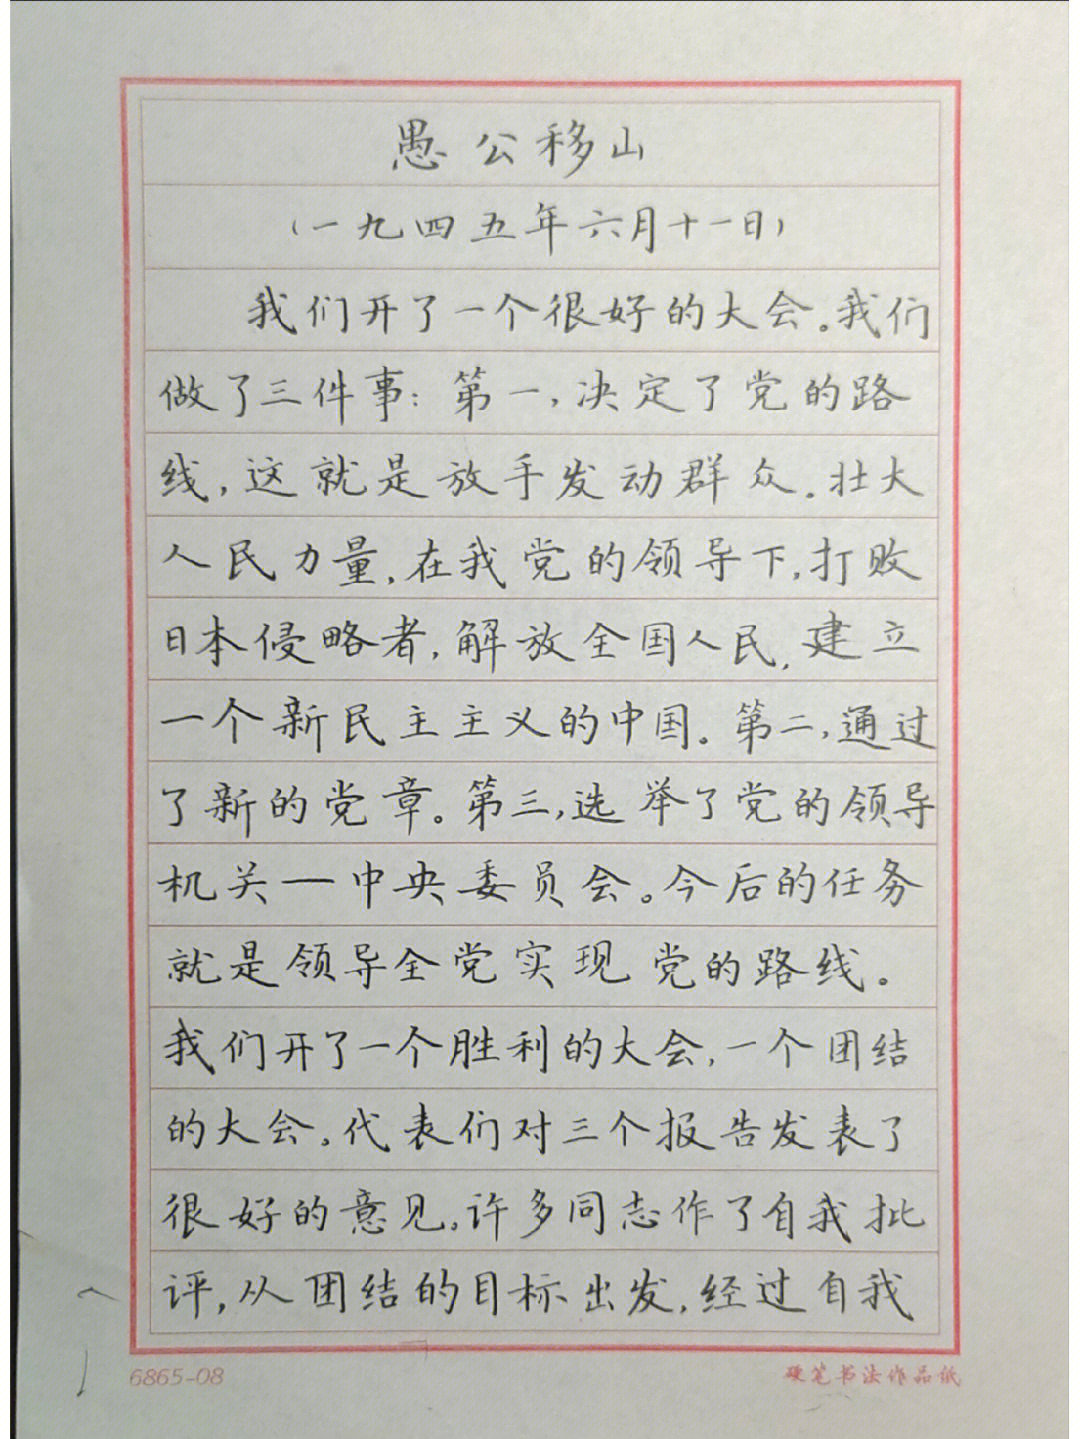 愚公移山
(一九四五年六月十一日)
我们开了一个很好的大会。我们
做了三件事：第一，决定了党的路
线，这就是放手发动群众。壮大
人民力量，在我党的领导下，打败
日本侵略者，解放全国人民，建立
一个新民主主义的中国。第二，通过
了新的党章。第三，选举了党的领导
机关—中央委员会。今后的任务
就是领导全党实现党的路线。
我们开了一个胜利的大会，一个团结
的大会。代表们对三个报告发表了
很好的意见。许多同志作了自我批
评，从团结的目标出发，经过自我
6865-08
硬笔书法作品纸